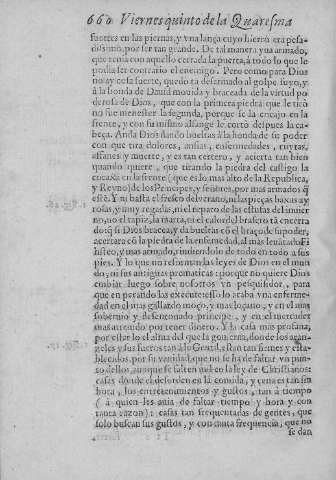 660 Viernes quinto de la Quaresma
fuertes en las piernas, y vna lança cuyo hierro era pesa-
dissimo, por ser tan grande. De tal manera yua armado,
que tenia con aquello cerrada la puerta, à todo lo que le
podia ser contrario el enemigo. Pero como para Dios
no ay cosa fuerte, quedo ta desarmado al golpe suyo, y
à la honda de Dauid mouida y braceada de la virtud po
derosa de Dios, que con la primera piedra que le tirò
no fue menester la segunda, porque se la encajo en la
frente, y con su mismo alfange le cortò despues la ca-
beça. Anda Dios dando bueltas à la honda de su poder
con que tira dolores, ansias, enfermedades, ruynas,
afanes y muerte, y es tan certero, y acierta tan bien
quando quiere, que tirando la piedra del castigo la
encaxa en la frente (que es lo mas alto de la Republica,
y Reyno) de los Principes, y señores, por mas armados q̃
estè. Y ni basta el fresco del verano, ni las pieças baxas ay
rosas, y muy regadas, ni el reparo de las estufas del inuier
no, no el tapiz, la marta, ni el calor del brasero tà encerra
do q̃ si Dios bracea, y da bueltas cõ el braço de su poder,
acertara cõ la piedra de la enfermedad, al mas leuãtado Fi
listeo, y mas armado, rindiendolo de todo en todo a sus
pies. Y lo que no reforman las leyes de Dios en el mun
do, ni sus antiguas prematicas: porque no quiere Dios
embiar luego sobre nosotros vn pesquisidor, para
que en pecando las execute esso lo acaba vna enferme-
dad en el mas gallardo moço, y mas loçano, y en el mas
soberuio y desenfrenado principe, y en el mercader
mas atreuido por tener dinero. Y la casa mas profana,
por estar lo el alma del que la gouierna, donde los aran-
geles y sus fueros tan à lo Gentil, estan tan firmes y esta-
blecidos por su vanidad, que no se ha de faltar vn pun-
to dellos, aunque se falten mil en la ley de Christianos:
casas donde el desorden en la comida, y cena es tan sin
hora, los entretenimientos y gustos, tan à tiempo
( à quien les auia de faltar tiempo y hora y con
tanta razon): casas tan frequentadas de gentes, que
solo buscan sus gustos, y con tanta frequencia, que no
se dan